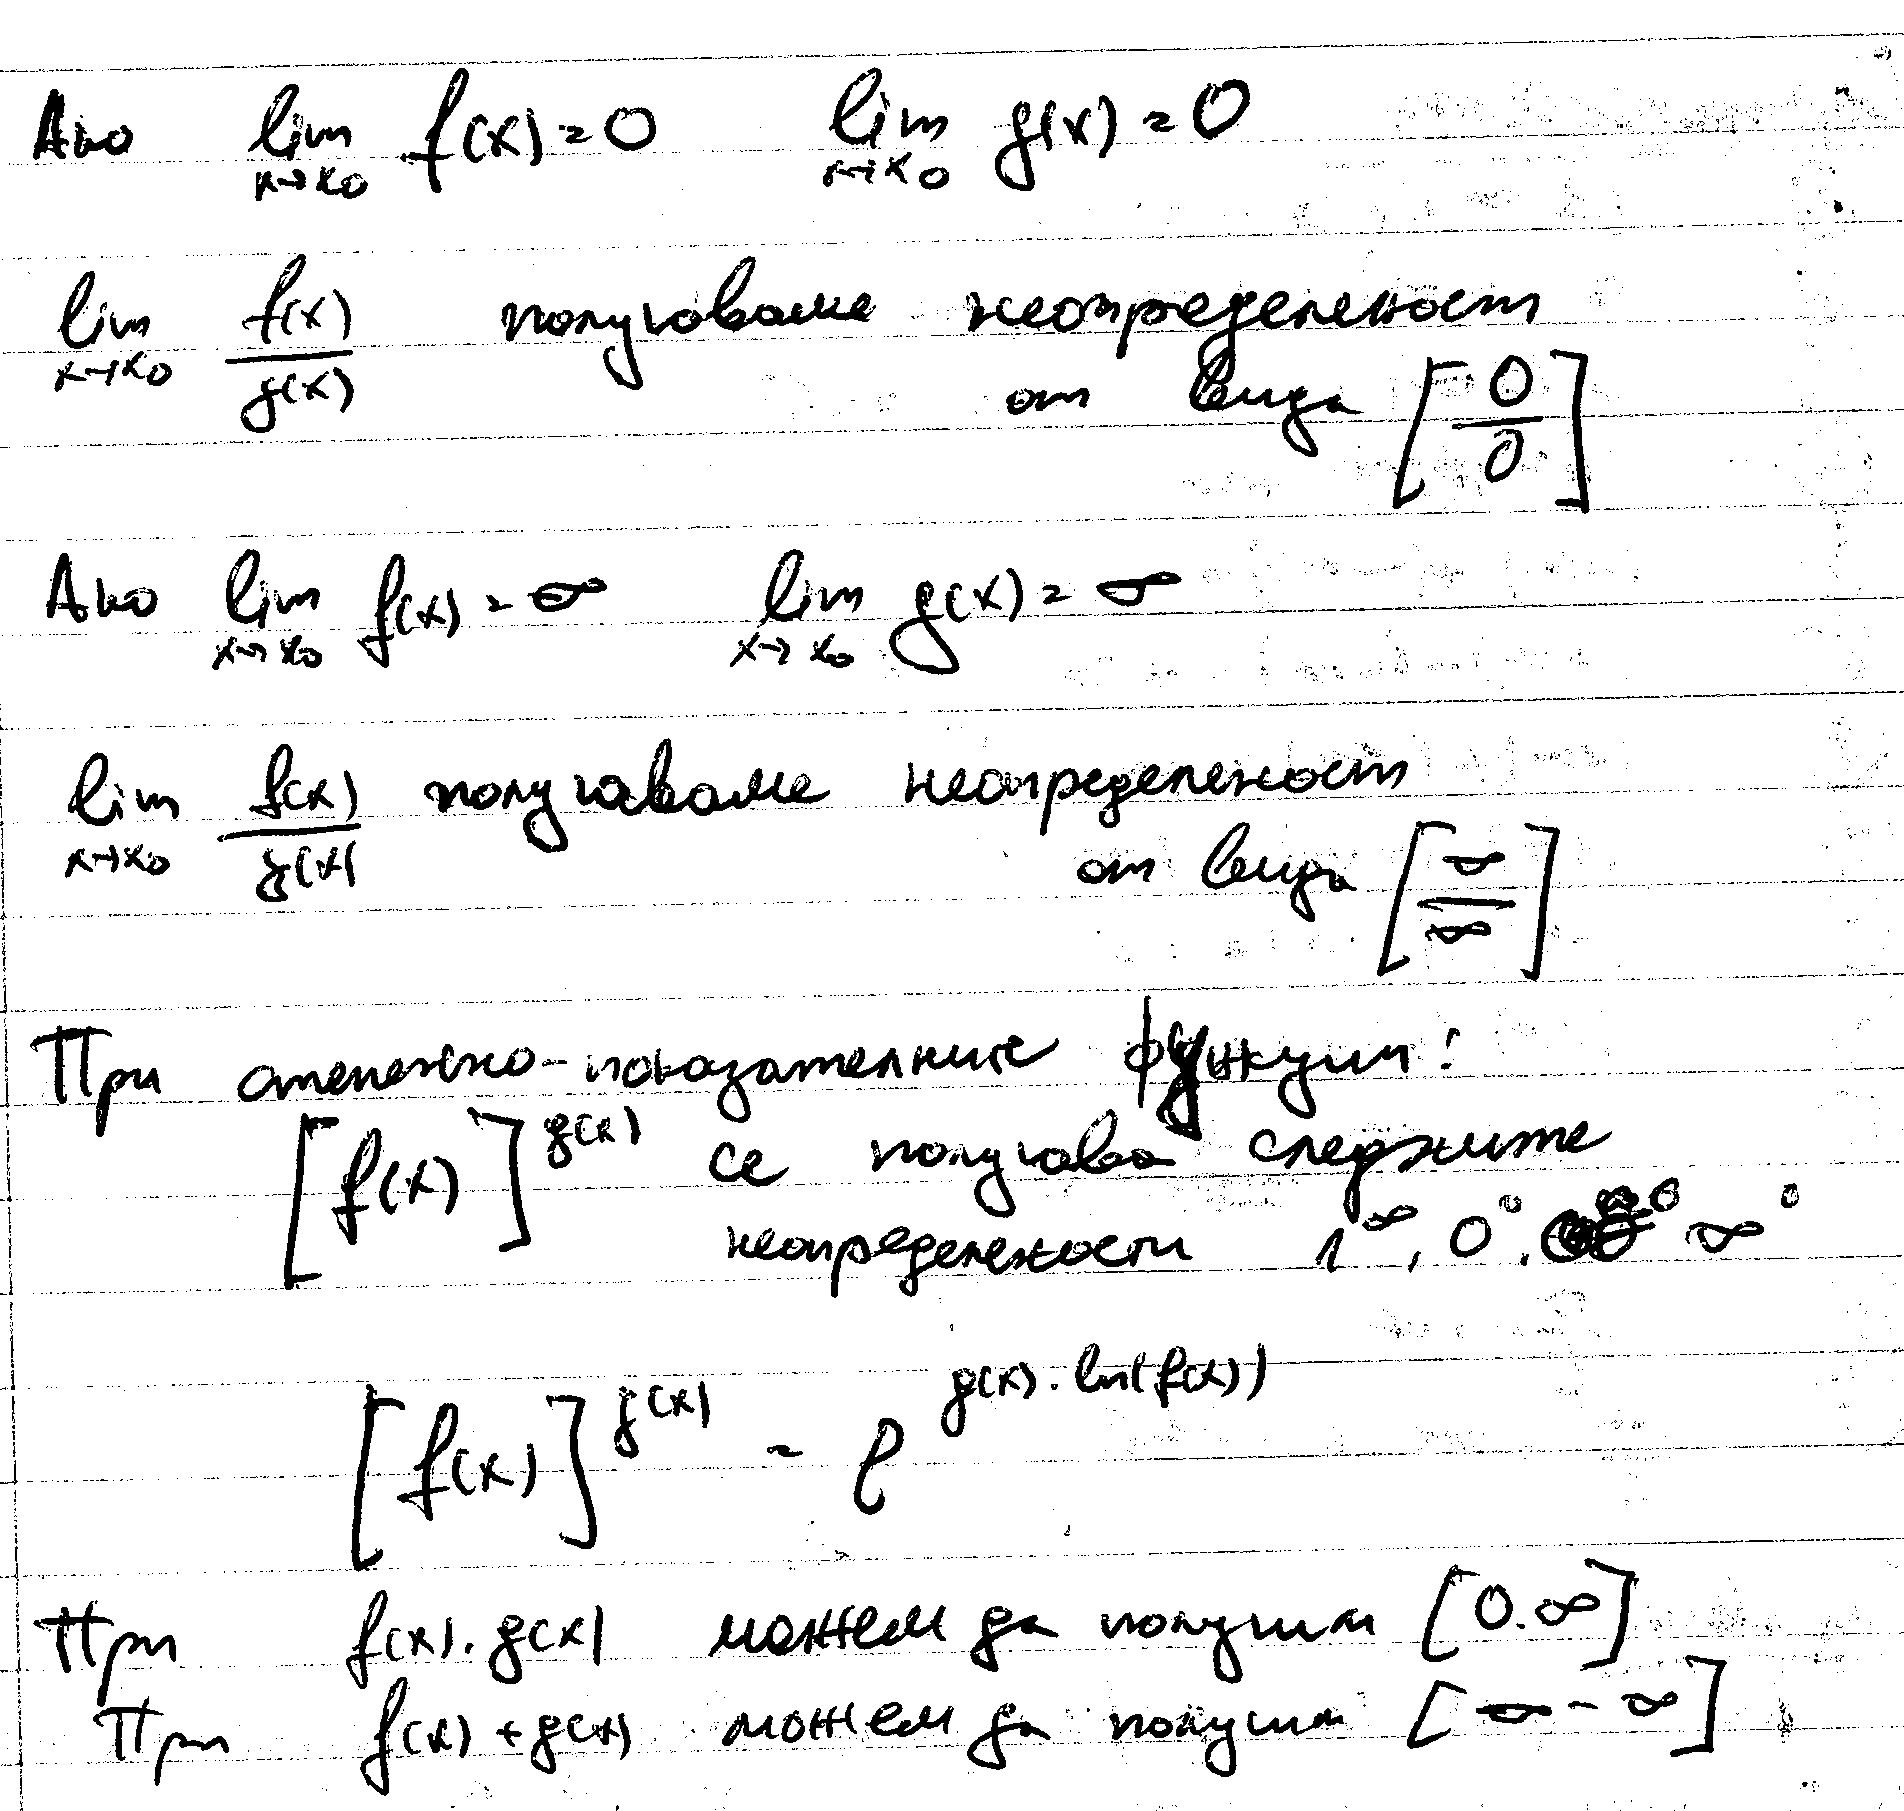 Ако lim x→x₀ f(x) = 0 lim x→x₀ g(x) = 0
lim x→x₀ f(x)/g(x) получаваме неопределеност
от вида [0/0]
Ако lim x→x₀ f(x) = ∞ lim x→x₀ g(x) = ∞
lim x→x₀ f(x)/g(x) получаваме неопределеност
от вида [∞/∞]
При степенно-показателните функции:
[f(x)]^g(x) се получава следните
неопределености 1^∞, 0^0, ∞^0
[f(x)]^g(x) = e^g(x).ln(f(x))
При f(x).g(x) можем да получим [0.∞]
При f(x)+g(x) можем да получим [∞-∞]